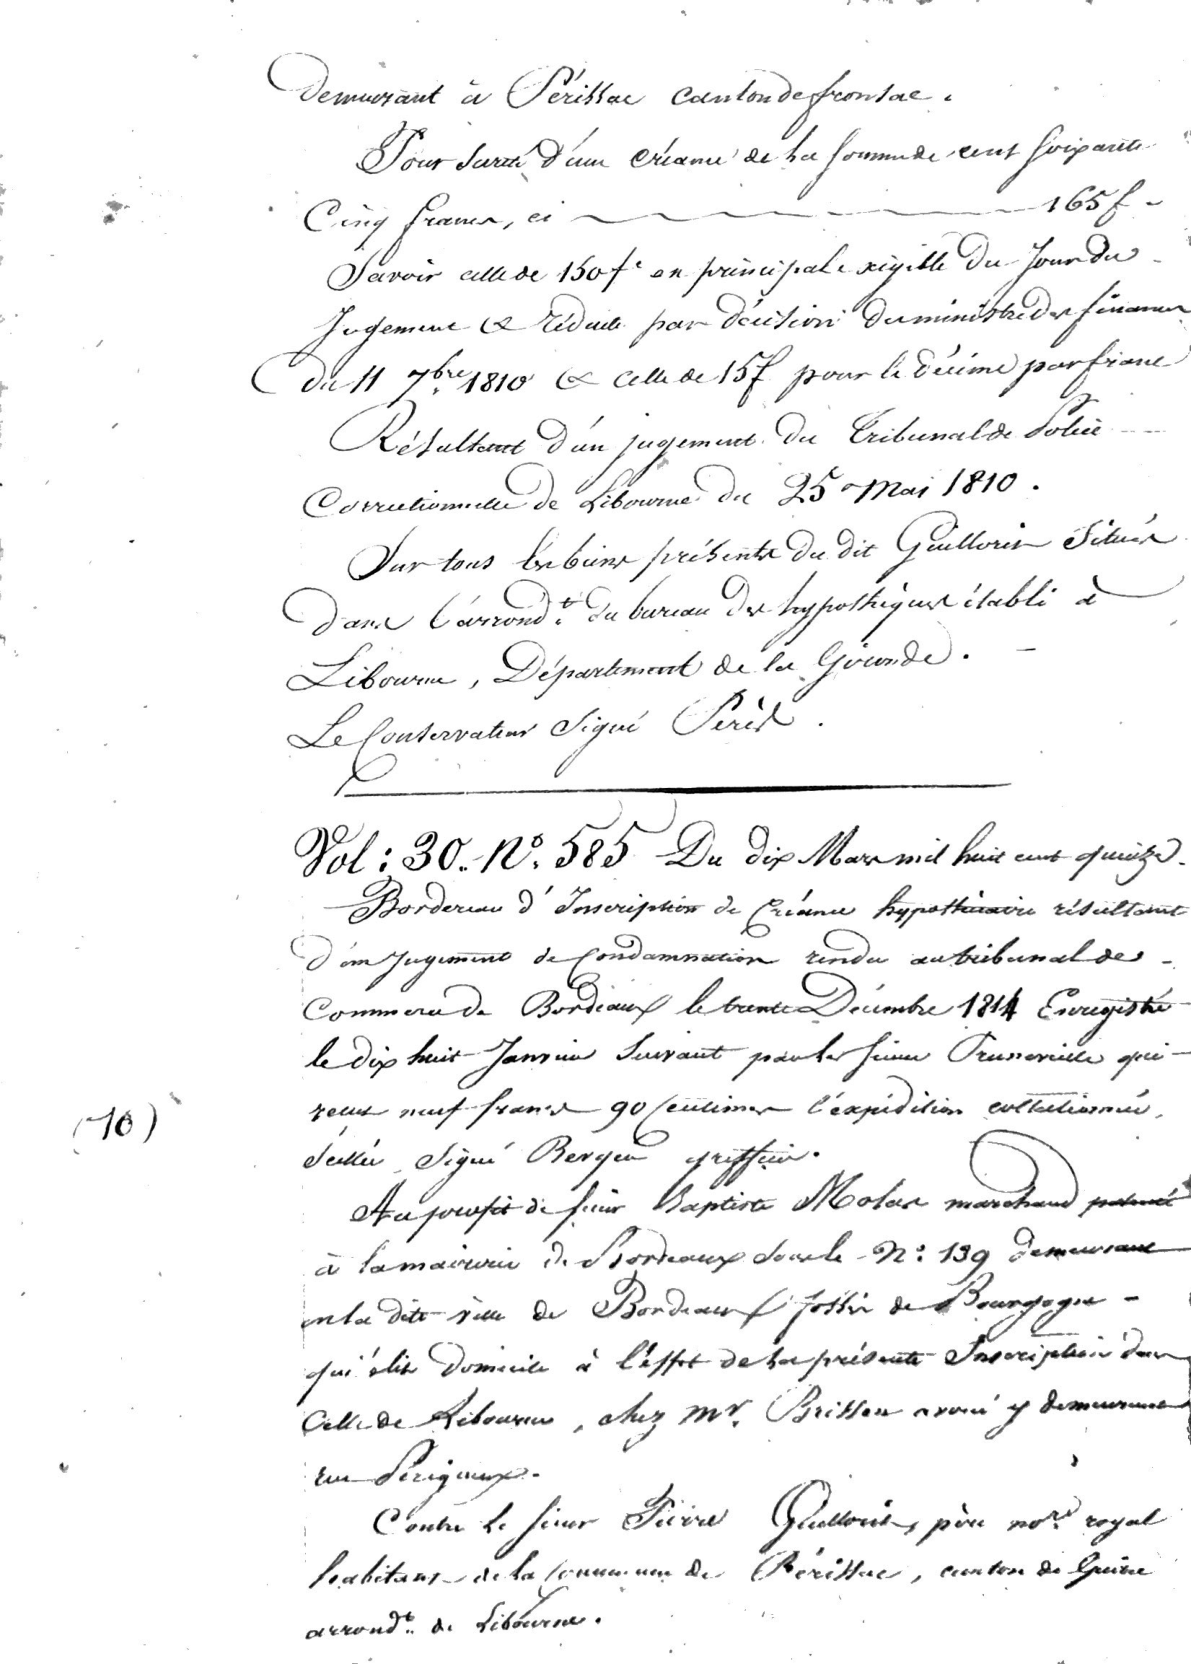 demeurant à Périssac canton de fronsac.
Pour sureté d'une créance de la somme de cent soixante
Cinq francs, ci 165 f -
Savoir celle de 150 f. en principal exigible du Jour du
Jugement & réduite par décision du ministre des finances
du 11 7bre 1810 & celle de 15 f pour le décime par franc
Résultant d'un jugement du Tribunal de Police
Correctionnelle de Libourne du 25 Mai 1810.
Sur tous les biens présents du dit Guillorin Situés
dans l'arrondt. du bureau des hypothèques établi à
Libourne, Département de la Gironde.
Le Conservateur Signé Périé.
Vol: 30. No. 585 Du dix Mars mil huit cent quinze.
Bordereau d'Inscription de Créance hypothécaire résultant
d'un Jugement de Condamnation rendu au tribunal de
Commerce de Bordeaux le trente Décembre 1814 Enregistré
le dix huit Janvier Suivant par le sieur qui
reçut neuf francs 90 Centimes l'expédition collationnée,
Scellée Signé greffier.
Au profit de sieur Baptiste Molas marchand patenté
à la mairie de Bordeaux sous le No. 139 demeurant
en la dite ville de Bordeaux fossés de Bourgogne -
qui élit domicile à l'effet de la présente Inscription dans
Celle de Libourne, chez Mr. Brisson avoué y demeurant
rue Périgueux.
(10)
Contre le sieur Pierre Guillorin, père nore. royal
habitant de la Commune de Périssac, canton de Guitre
arrondt. de Libourne.